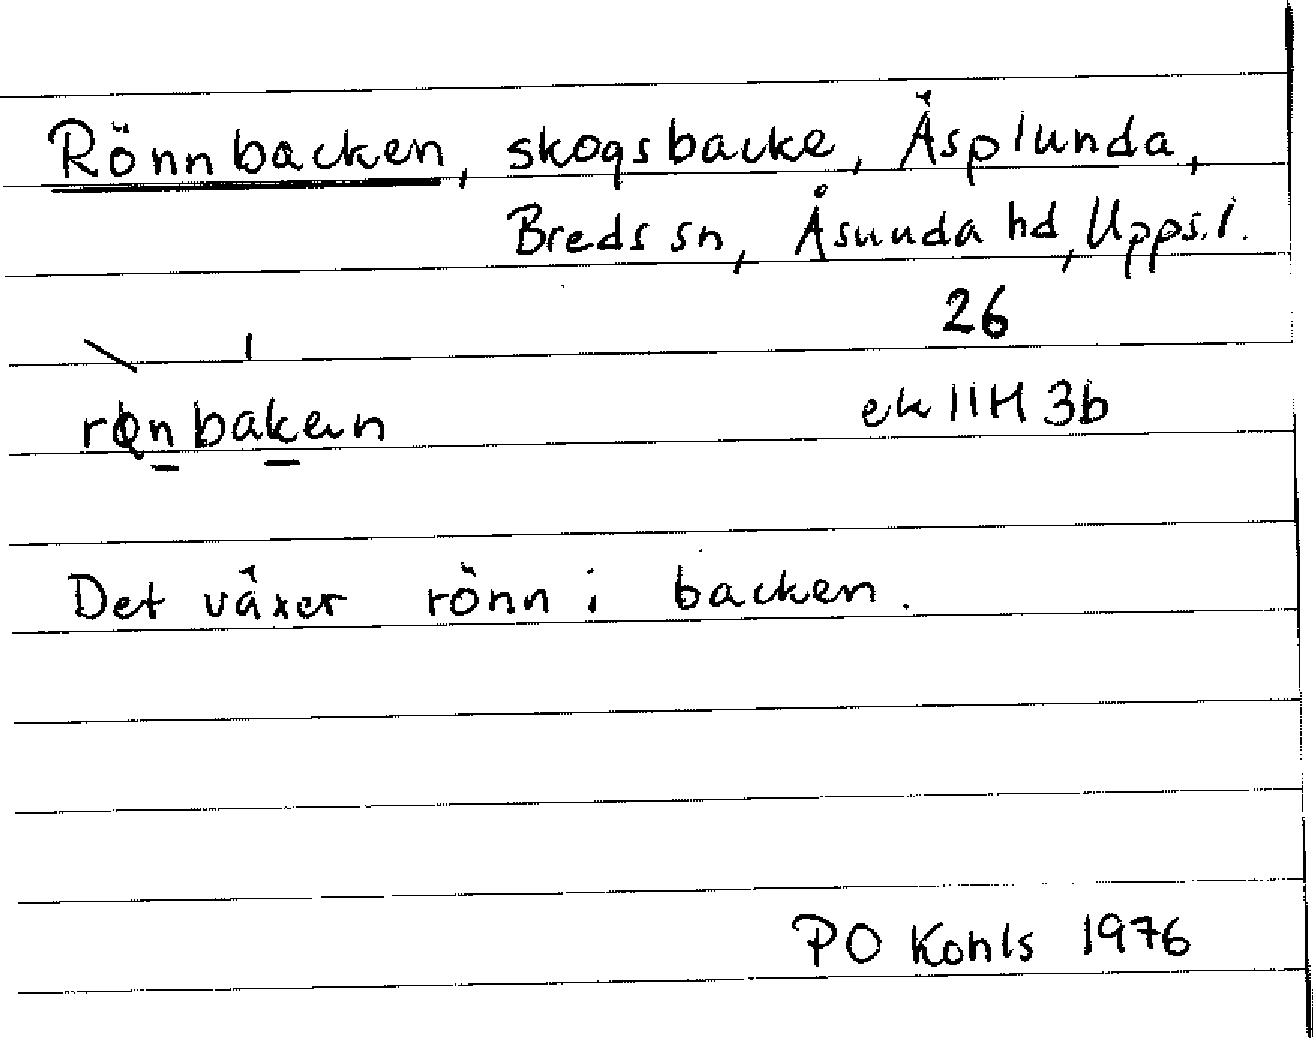 Rönnbacken, skogsbacke, Äsplunda,
Breds sn, Åsunda hd, Upps.l.
26
ek 11H 3b
Det växer rönn i backen.
PO Kohls 1976